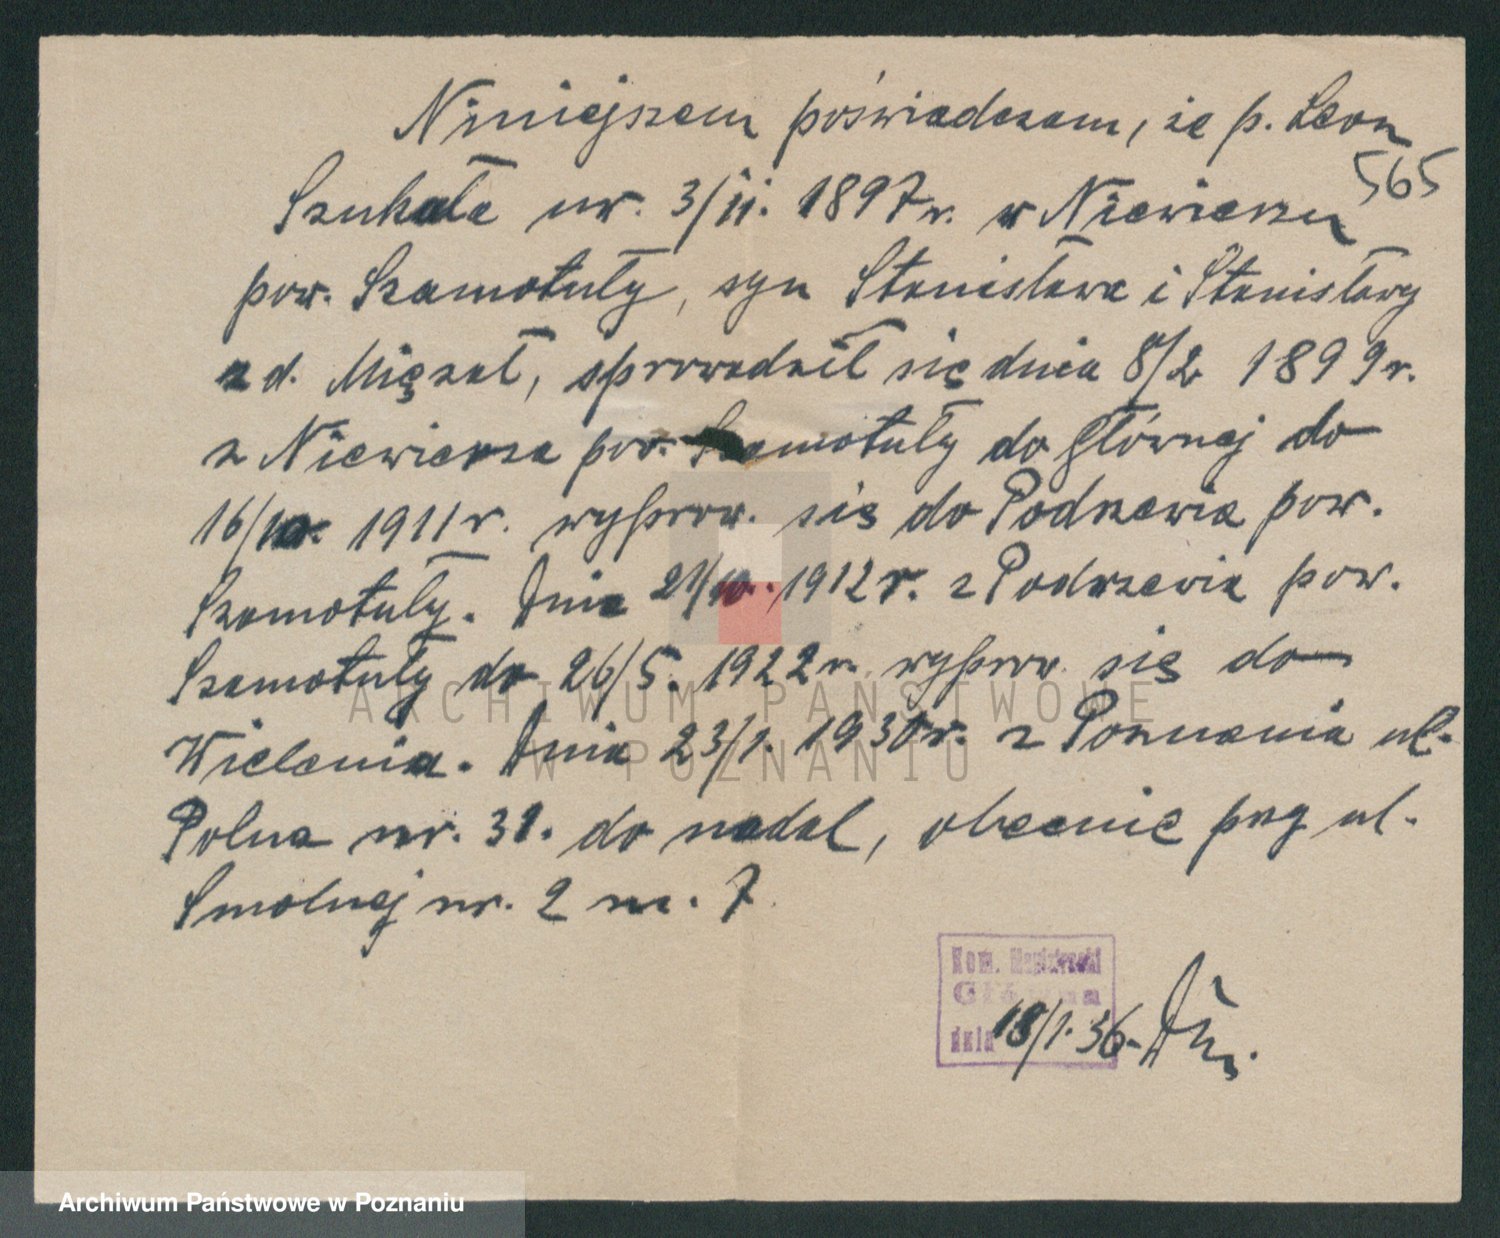 Niniejszem poświadczam, że p. Leon
565
Szukała ur. 3/11. 1897r. w Niewierzu
pow. Szamotuły, syn Stanisława i Stanisławy
z d. Mięzał, sprowadził się dnia 8/2 1899r.
z Niewierza pow. Szamotuły do Głównej do
16/10. 1911r. wyprow. się do Podrzewia pow.
Szamotuły. Dnia 21/10. 1912r. z Podrzewia pow.
Szamotuły do 26/5. 1922r. wyprow. się do
Wielenia. Dnia 23/1. 1930r. z Poznania ul.
Polna nr. 31. do nadal, obecnie przy ul.
Smolnej nr. 2 m. 7.
Kom.
Główna
dnia 18/1. 36.
ARCHIWUM PAŃSTWOWE
W POZNANIU
Archiwum Państwowe w Poznaniu